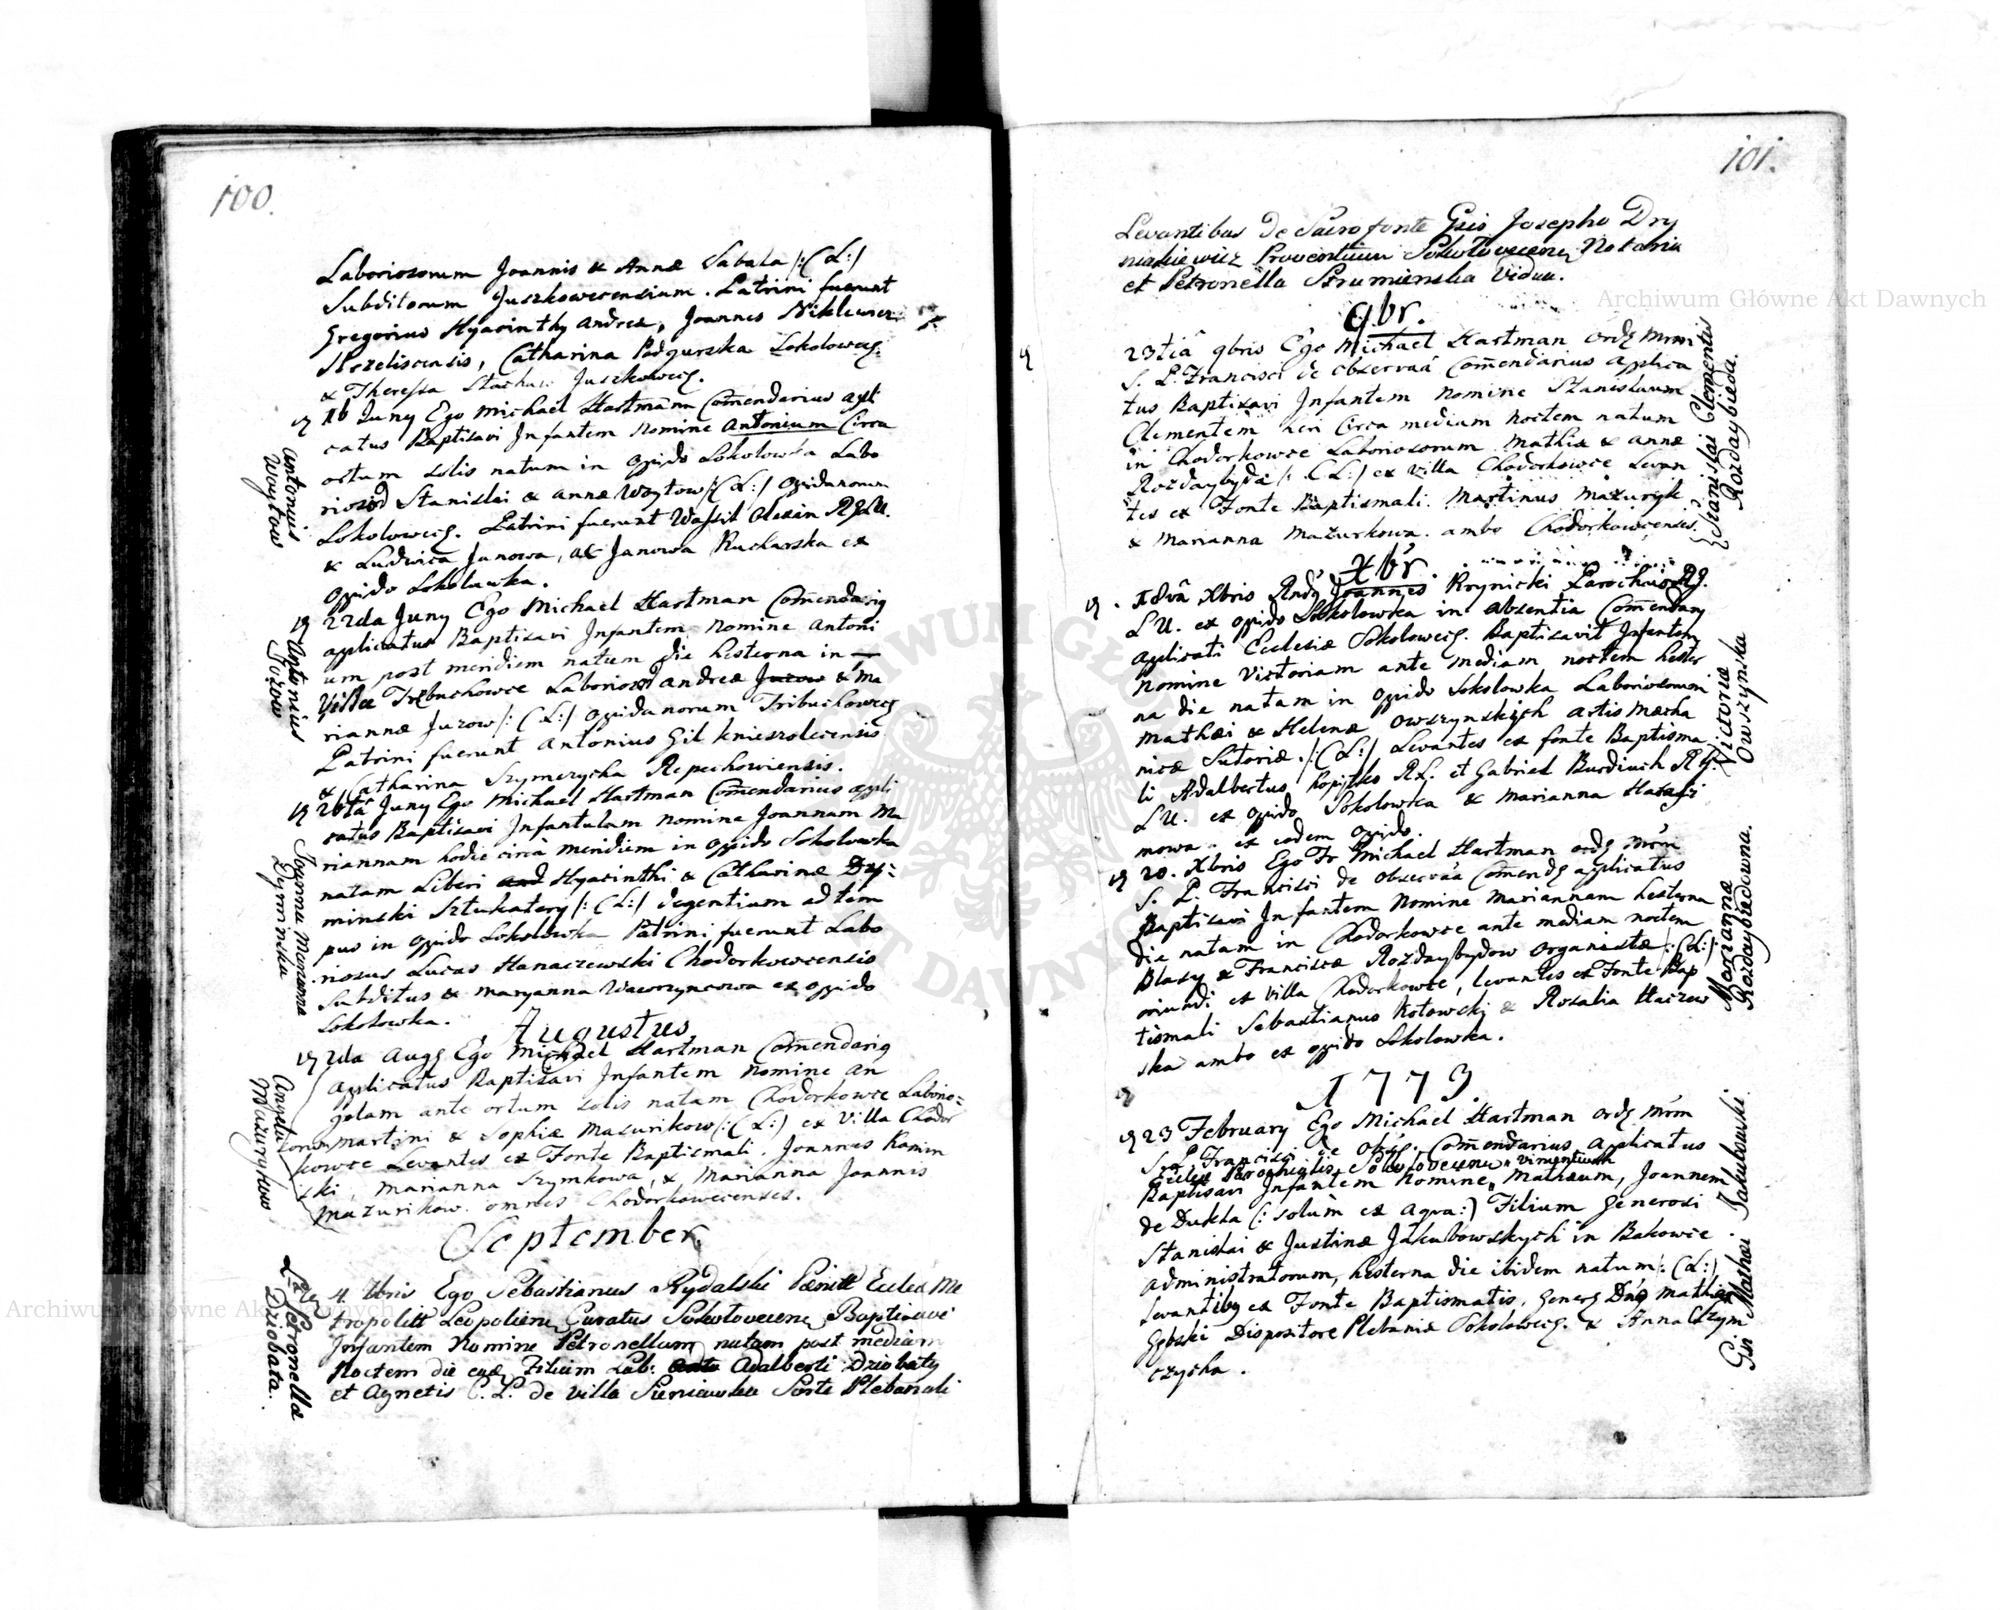 100.
Laboriosorum Joannis & Annæ Sabata /:(L:)/
Subditorum Juszkowecensium. Patrini fuerunt
Gregorius Hyacinthy Andreæ, Joannes Niklewicz
Strzeliscensis, Catharina Podgurska Sokolowecs.
& Theressa Stachow Juszkowecs.
16 Juny Ego Michael Hartmann Comendarius appli
catus Baptisavi Infantem Nomine Antonium Circa
ortum solis natum in oppido Sokolowka Labo
riosor Stanislai & Annæ Woytow /:(L:)/ oppidanorum
Sokolowecs. Patrini fuerunt Wassil Olexin R.G.L.U.
& Ludwica Janowa, ac Janowa Kucharska ex
oppido Sokolowka.
Antonius
Woytow
22da Juny Ego Michael Hartman Comendarig
applicatus Baptisavi Infantem Nomine Antoni
um post meridiem natum die hesterna in
Villa Trybuchowce Laborios Andreæ Jurow & Ma
riannæ Jurow /:(L:)/ oppidanorum Tribuchowecs
Patrini fuerunt Antonius Gil Knieszolecensis
& Catharina Szymczycha Repechowiensis.
Antonius
Jurow
26ta Juny Ego Michael Hartman Comendarius appli
catus Baptisavi Infantulam Nomine Joannam Ma
riannam hodie circa meridiem in oppido Sokolowka
natam Liberi Hyacinthi & Catharinæ Dry-
minski Sztukatery /:(L:)/ degentium ad tem
pus in oppido Sokolowka Patrini fuerunt Labo
riosus Lucas Hanaczewski Chodorkowcensis
Subditus & Maryanna Wawrzyncowa ex oppido
Sokolowka.
Joanna Marianna
Dryminska
Augustus
2da Augs Ego Michael Hartman Comendarig
Applicatus Baptisavi Infantem Nomine An
gelam ante ortum solis natam Chodorkowce Laborio-
rum Martini & Sophiæ Mazurikow /:(L:) ex Villa Chodor
kowce Levantes ex Fonte Baptismali. Joannes Kamin
ski, Marianna Szymkowa, & Marianna Joannis
Mazurikow. omnes Chodorkowecenses.
Angela
Mazurykow
September
4. 7bris Ego Sebastianus Rydalski Pœnitt Eccles Me
tropolitt Leopoliens Curatus Sokolovecens Baptisavi
Infantem Nomine Petronellam natam post mediam
Noctem die ejus Filiam Lab: Adalberti Dziobaty
et Agnetis C. L. de villa Sieniawka Sorte Plebanali
Petronella
Dziobata.
101.
Levantibus de Sacro fonte Gsis Josepho Dry
niakiewicz Proventuum Sokolovecens Notario
et Petronella Strumienska Vidua.
9br.
23tia 9bris Ego Michael Hartman ords Mrm
S. P. Francisci de observa Comendarius applica
tus Baptisavi Infantem Nomine Stanislaum
Clementem heri Circa mediam Noctem natum
in Chodorkowce Laboriosorum Mathiæ & Annæ
Rozdaybyda /:(L:) ex villa Chodorkowce Levan
tes ex Fonte Baptismali. Martinus Mazuryk
& Marianna Mazurkowa. ambo Chodorkowcenses.
Stanislai Clementis
Rozdaybieda.
Xbr.
18va Xbris Rnds Joannes Krynicki Parochus R.G.
L.U. ex oppido Sokolowka in absentia Comendary
Applicati Ecclesiæ Sokolowecs. Baptisavit Infantem
Nomine Victoriam ante mediam noctem hester
na die natam in oppido Sokolowka Laboriosorum
Mathæi & Helenæ Owszynskich artis Mecha
nicæ Sutoriæ. /:(L:)/ Levantes ex fonte Baptisma
li Adalbertus Kopitko R.L. et Gabriel Burdiuch R.G.
L.U. ex oppido Sokolowka & Marianna
mowa. ex eodem oppido.
Victoriæ
Owszynska
20. Xbris Ego Fr Michael Hartman ords Mrm
S. P. Francisci de Observa Comends applicatus
Baptisavi Infantem Nomine Mariannam hesterna
die natam in Chodorkowce ante mediam noctem
Blasy & Franciscæ Rozdaybydow Organistæ /:(L:)
oriundi ex Villa Chodorkowce, Levantes ex Fonte Bap
tismali Sebastianus Kotowski & Rosalia Haczew
ska ambo ex oppido Sokolowka.
Mariannæ
Rozdaybiedowna.
1773
23 February Ego Michael Hartman ords Mrm
S. P. Francisci de obss. Comendarius applicatus
Eccles Parochialis Sokolovecens Vimentiush
Baptisavi Infantem Nomine Mathæum, Joannem
de Dukla (: solùm ex aqua:) Filium Generosi
Stanislai & Justinæ Jakubowskych in Bakowce
Administratorum, hesterna die ibidem natum: (L:)
Levantibg ex Fonte Baptismatis. Geners Dng Mathias
Gębski Dispositore Plebaniæ Sokolowecs. & Anna Szym
czycha.
Gsi Mathæi Jakubowski